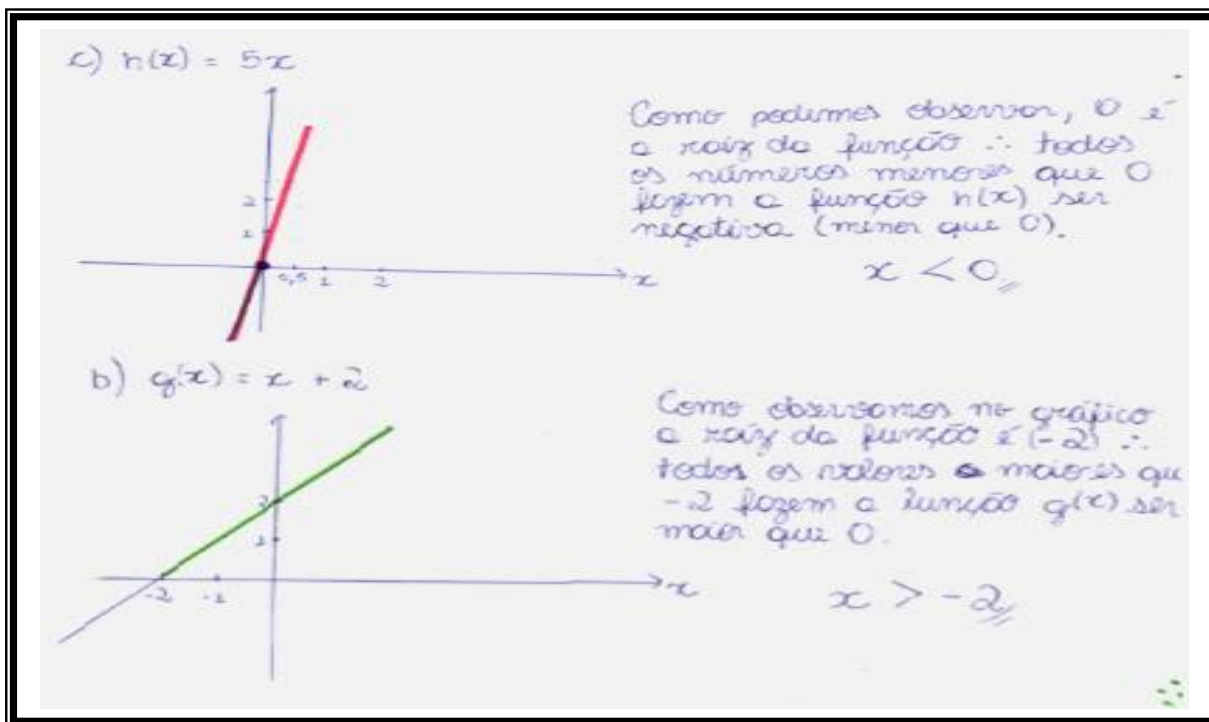 c) h(x) = 5x
Como podemos observar, 0 é
a raiz da função ∴ todos
os números menores que 0
fazem a função h(x) ser
negativa (menor que 0).
x < 0
2
1
0,5 1 2
x
b) g(x) = x + 2
Como observamos no gráfico
a raiz da função é (-2) ∴
todos os valores maiores qu
-2 fazem a função g(x) ser
maior que 0.
x > -2
2
1
-2 -1
x